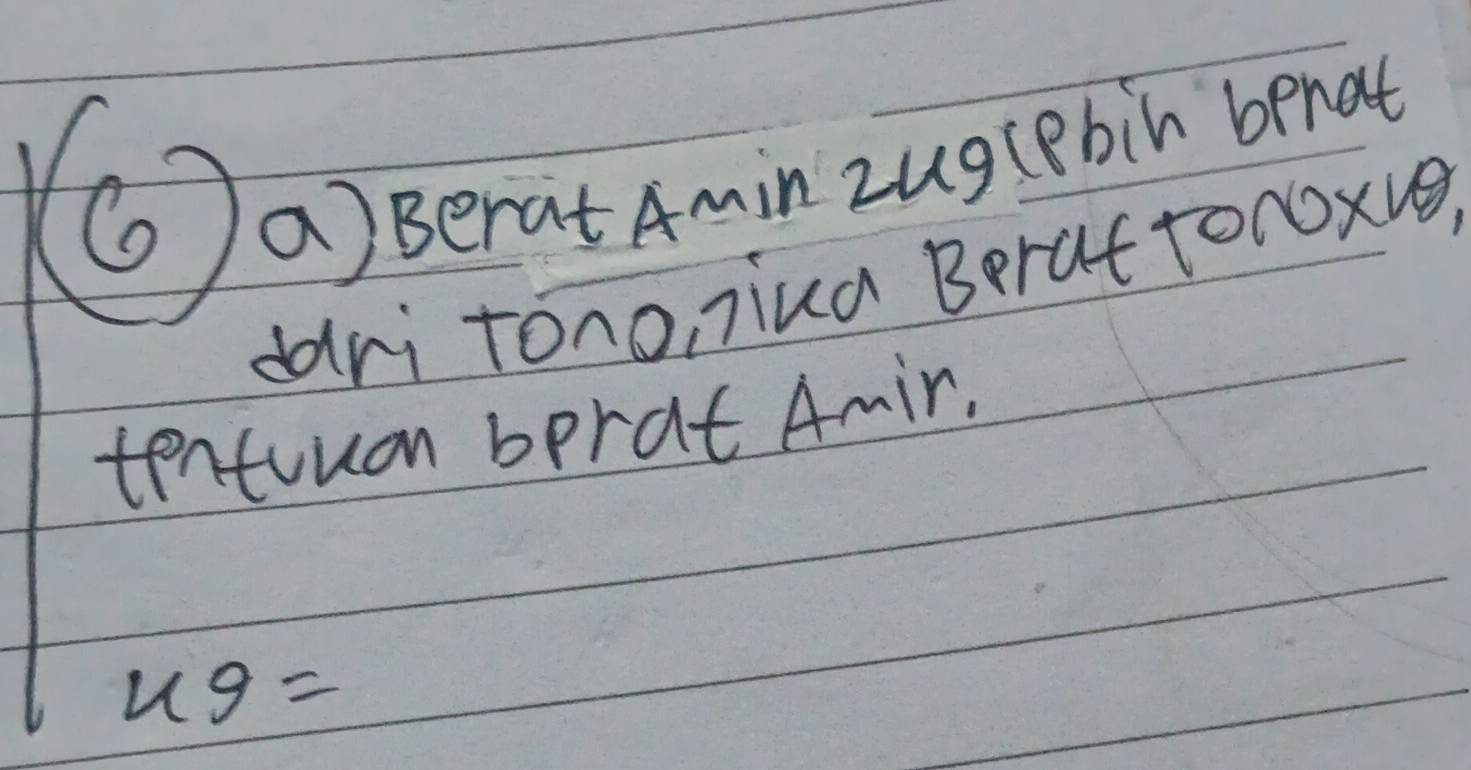 6 a) Berat Amin 2 kg lebih berat
dari Tono, Jika Berat Tono x kg,
tentukan berat Amir.
kg =